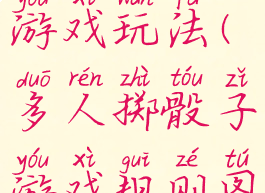 yóu xì wán fǎ
游戏玩法(
duō rén zhì tóu zǐ
多人掷骰子
yóu xì guī zé tú
游戏规则图